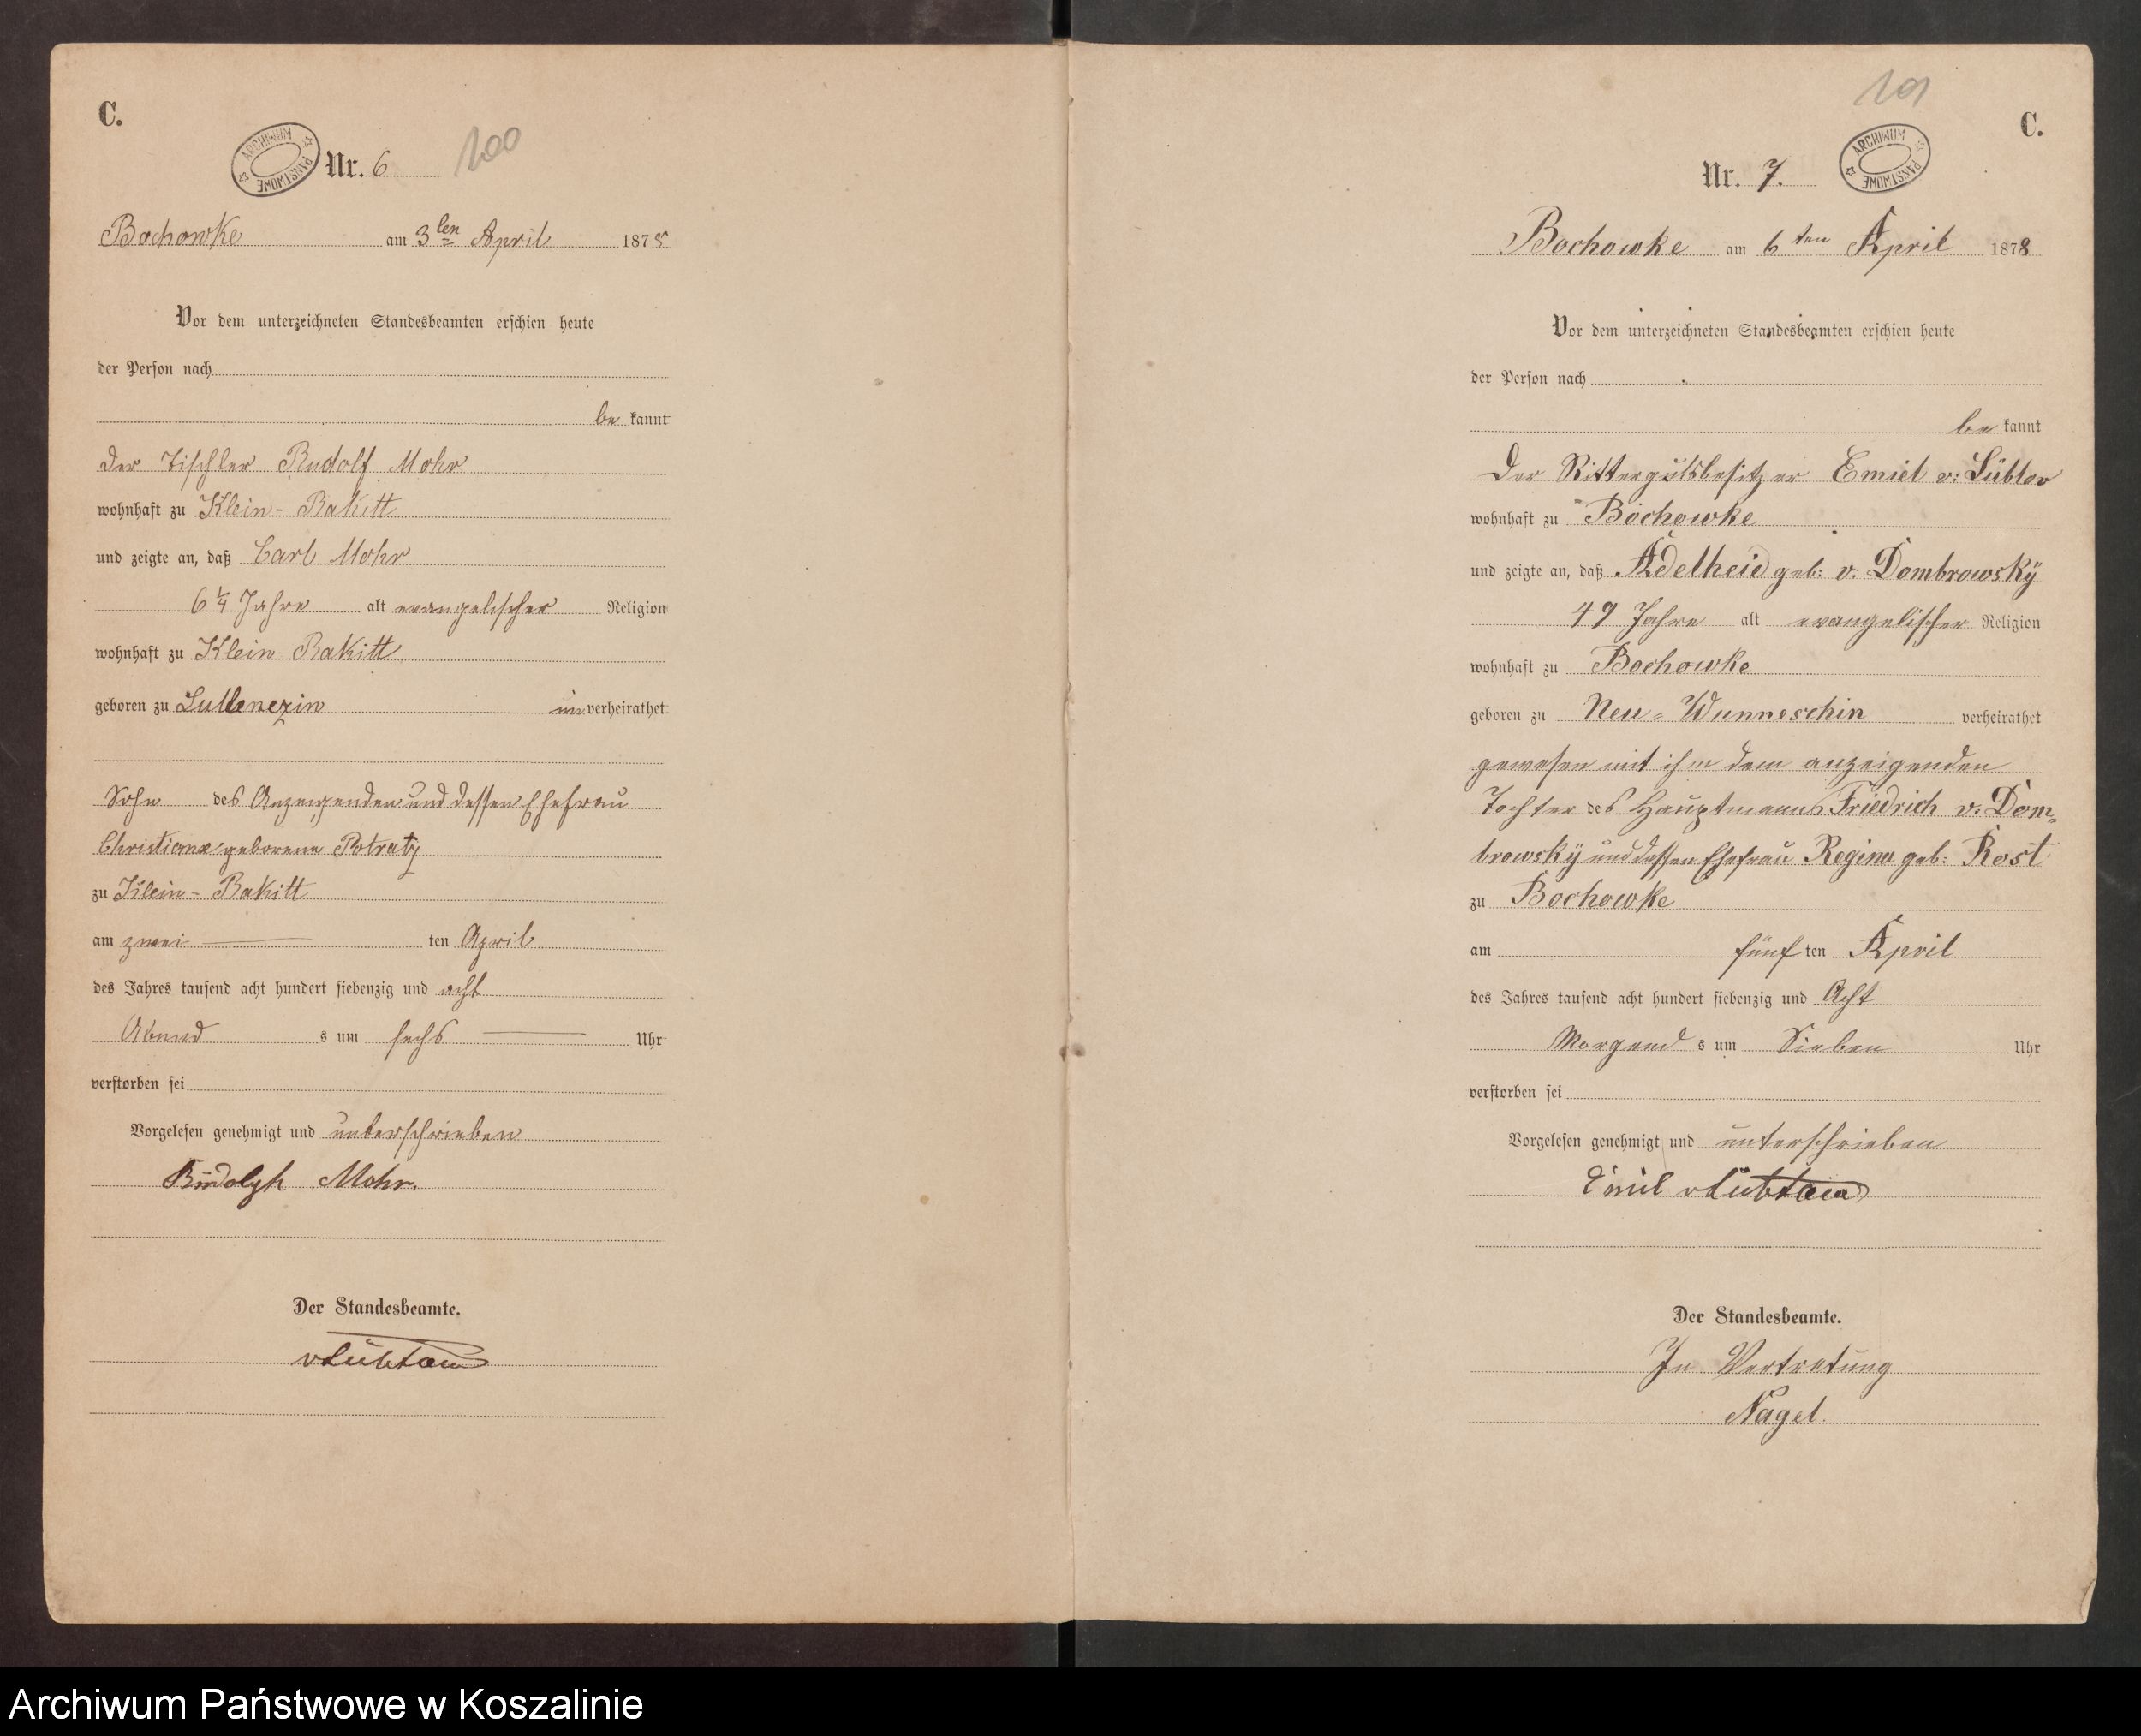 C.
ARCHIWUM PAŃSTWOWE
Nr. 6
100
Bochowke am 3ten April 1878
Vor dem unterzeichneten Standesbeamten erschien heute
der Person nach
be kannt
der Tischler Rudolf Mohr
wohnhaft zu Klein-Rakitt
und zeigte an, daß Carl Mohr
6 1/4 Jahre alt evangelischer Religion
wohnhaft zu Klein Rakitt
geboren zu un verheirathet
Sohn des Anzeigenden und dessen Ehefrau
Christiane geborene Potratz
zu Klein-Rakitt
am zwei ten April
des Jahres tausend acht hundert siebenzig und acht
Abend s um sechs Uhr
verstorben sei
Vorgelesen genehmigt und unterschrieben
Rudolph Mohr.
Der Standesbeamte.
vLübtow
101
C.
Nr. 7.
ARCHIWUM PAŃSTWOWE
Bochowke am 6ten April 1878
Vor dem unterzeichneten Standesbeamten erschien heute
der Person nach
be kannt
Der Rittergutsbesitzer Emiel v: Lübtow
wohnhaft zu Bochowke
und zeigte an, daß Adelheid geb: v: Dombrowsky
49 Jahre alt evangelischer Religion
wohnhaft zu Bochowke
geboren zu Neu-Wunneschin verheirathet
gewesen mit ihm dem anzeigenden
Tochter des Hauptmanns Friedrich v: Dom-
browsky und dessen Ehefrau Regina geb: Rost
zu Bochowke
am fünf ten April
des Jahres tausend acht hundert siebenzig und Acht
Morgend s um Sieben Uhr
verstorben sei
Vorgelesen genehmigt und unterschrieben
Emil vLübtow
Der Standesbeamte.
In Vertretung
Nagel.
Archiwum Państwowe w Koszalinie